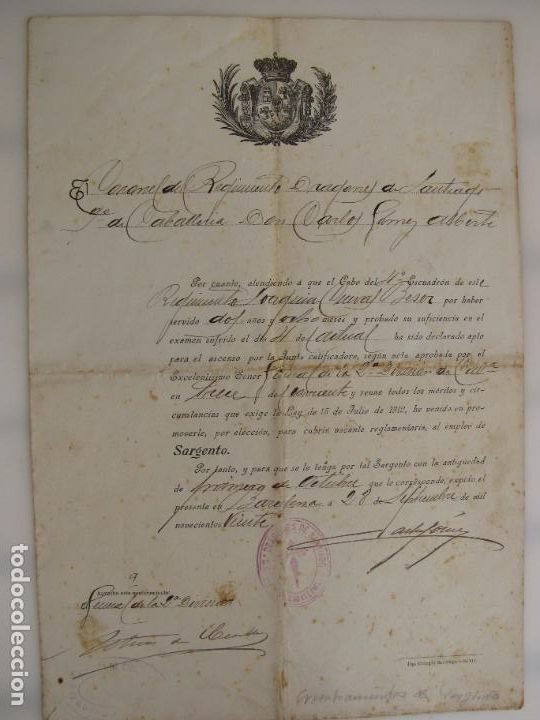 El Coronel del Regimiento Dragones de Santiago
9º de Caballeria Don Carlos Gómez
Por cuanto, atendiendo á que el Cabo del 4º Escuadrón de este
Regimiento Joaquin por haber
servido dos años y ocho meses y probado su suficiencia en el
examen sufrido el día del actual ha sido declarado apto
para el ascenso por la Junta calificadora, según acta aprobada por el
Excelentísimo Señor General de la 2ª División de Cabª
en trece del corriente y reune todos los méritos y cir-
cunstancias que exige la Ley de 15 de Julio de 1912, he venido en pro-
moverle, por elección, para cubrir vacante reglamentaria, al empleo de
Sargento.
Por tanto, y para que se le tenga por tal Sargento con la antigüedad
de primero de Octubre que le corresponde, expido el
presente en Barcelona á 28 de Septiembre de mil
novecientos veinte
Carlos Gómez
General de la 2ª División
Nombramientos de Sargento
todocoleccion